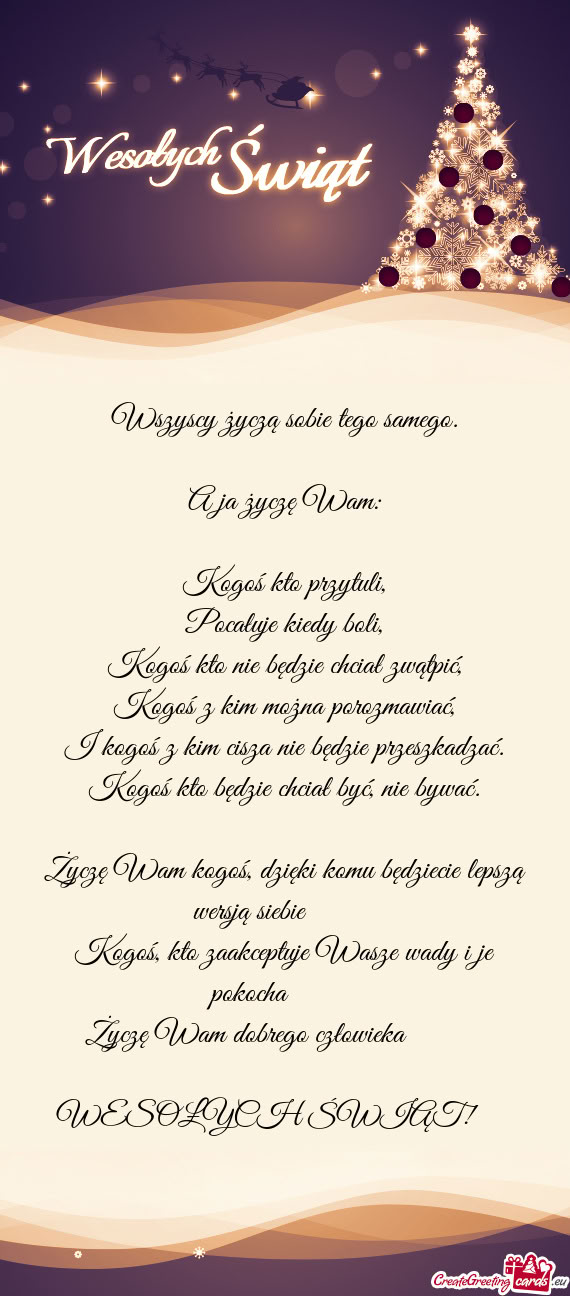 Wesołych Świąt
Wszyscy życzą sobie tego samego.
A ja życzę Wam:
Kogoś kto przytuli,
Pocałuje kiedy boli,
Kogoś kto nie będzie chciał zwątpić,
Kogoś z kim można porozmawiać,
I kogoś z kim cisza nie będzie przeszkadzać.
Kogoś kto będzie chciał być, nie bywać.
Życzę Wam kogoś, dzięki komu będziecie lepszą
wersją siebie
Kogoś, kto zaakceptuje Wasze wady i je
pokocha
Życzę Wam dobrego człowieka
WESOŁYCH ŚWIĄT!
CreateGreetingcards.eu